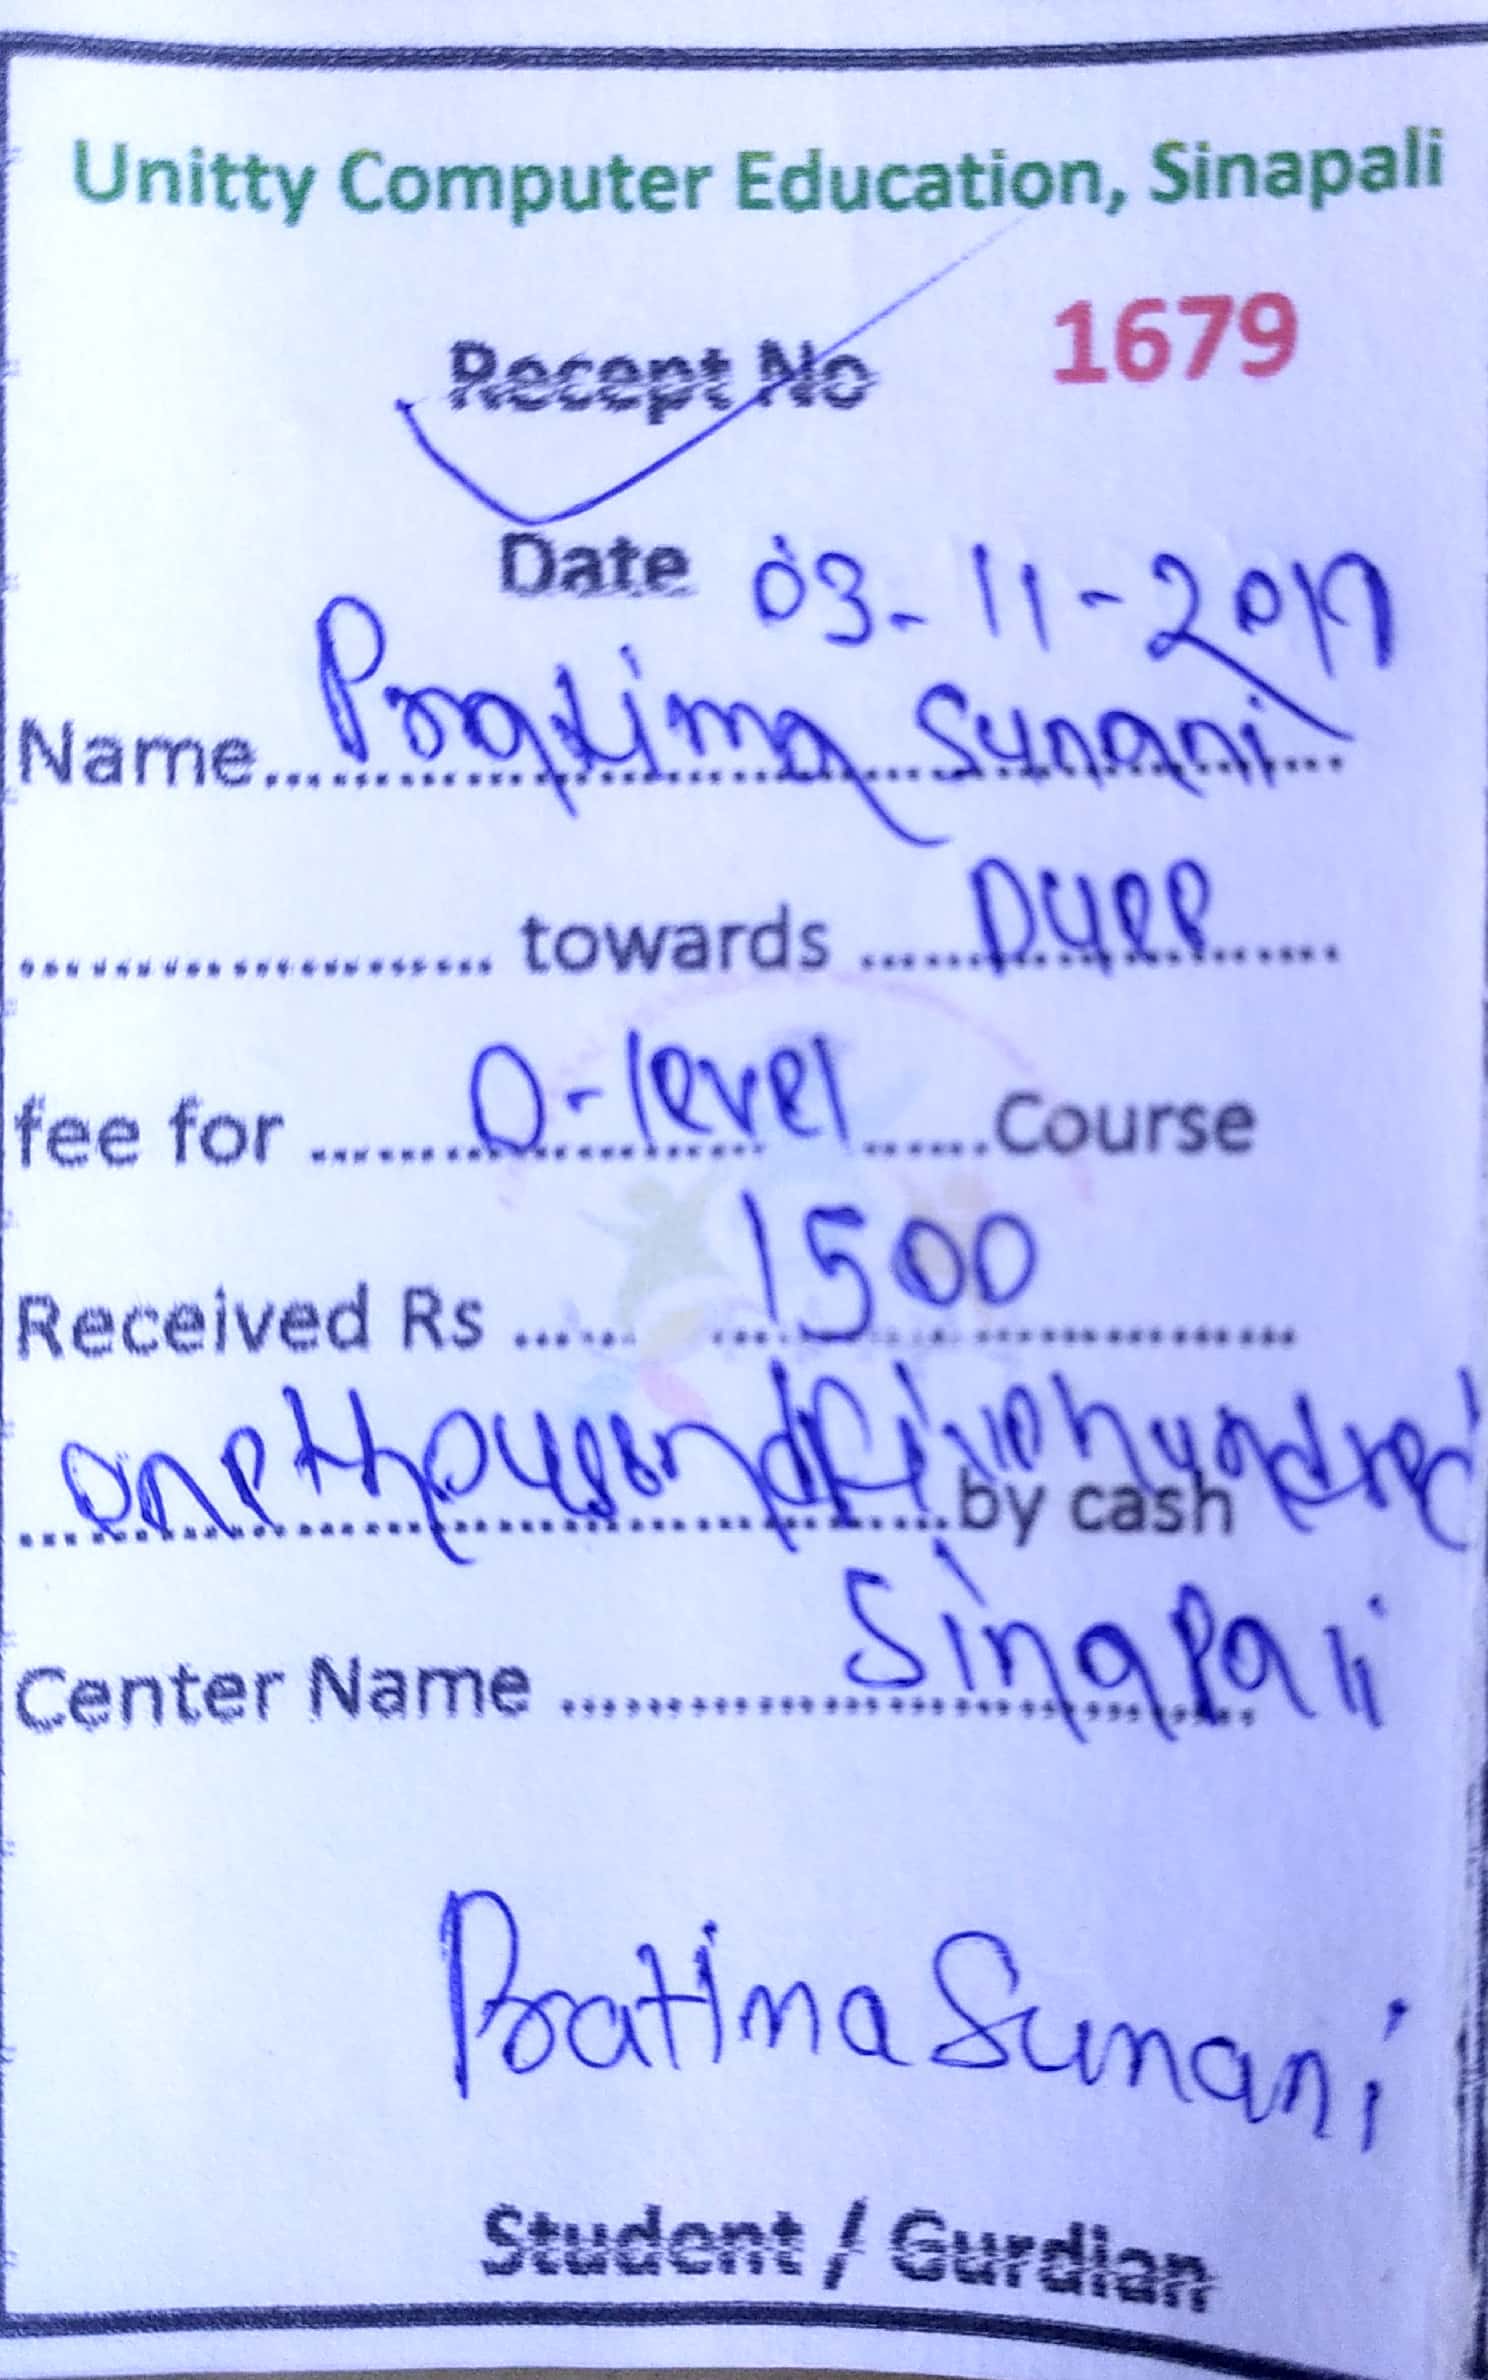 Unitty Computer Education, Sinapali
Recept No 1679
Date 03-11-2017
Name... Pratima Sunani...
... towards ... Duee ...
fee for ... O-level ... Course
Received Rs ... 1500 ...
one thousand five hundred
... by cash
Center Name ... Sinapali
Pratima Sunani
Student / Gurdian